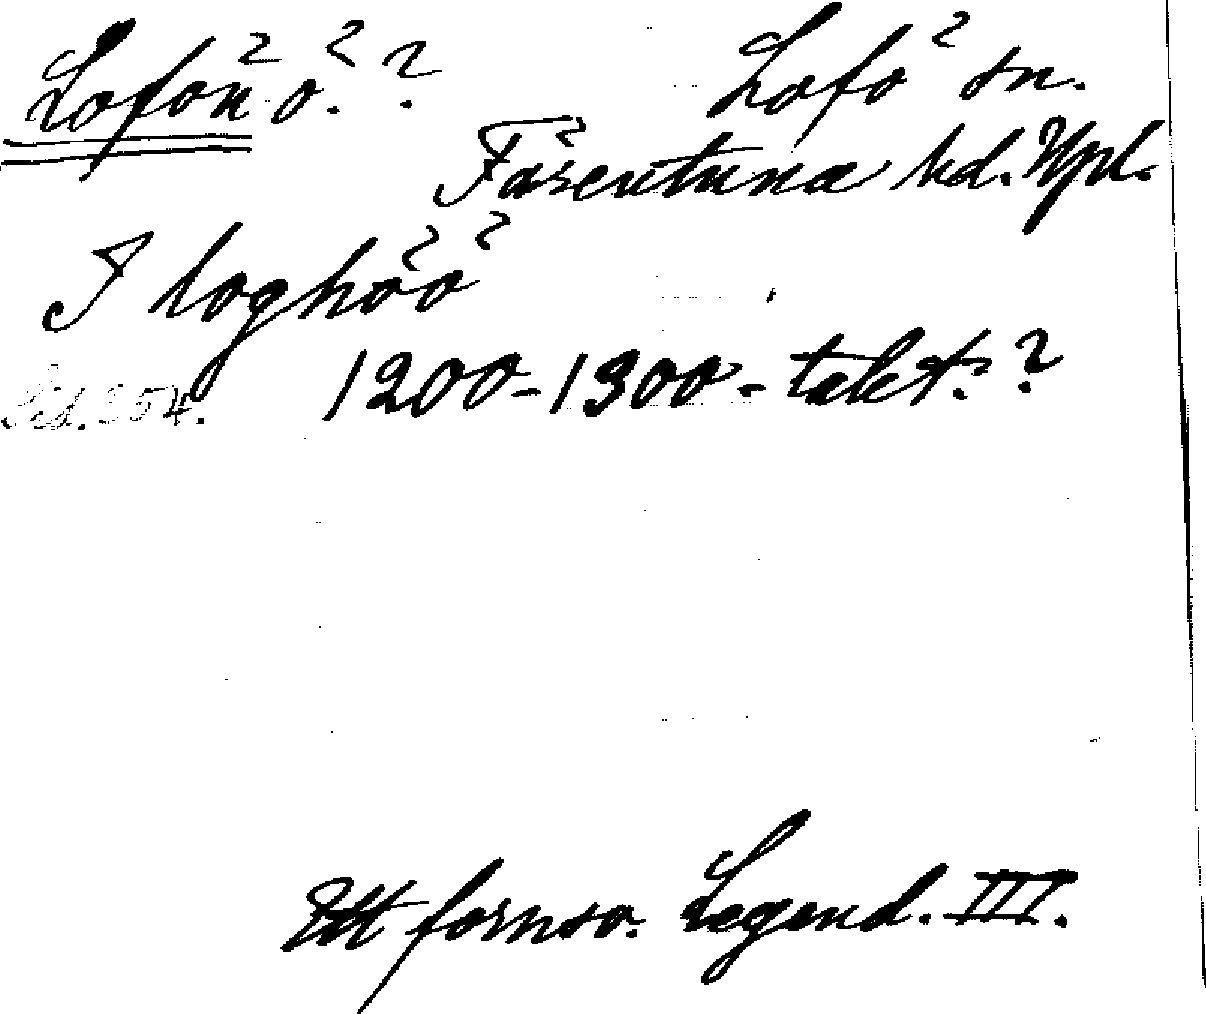 Lofön ö. ? Lofö sn.
Färentuna hd. Upl.
I loghöö
Sid. 254. 1200-1300-talet. ?
Ett fornsv. Legend. III.